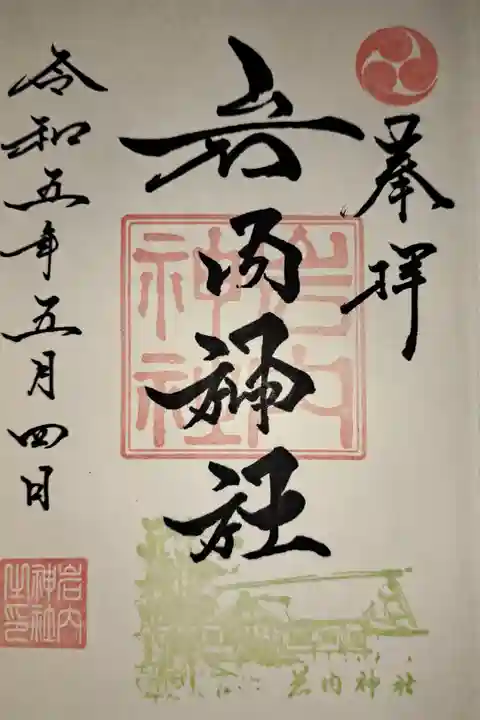 奉拝
岩内神社
令和五年五月四日
岩内
神社
岩内
神社
之印
岩内神社